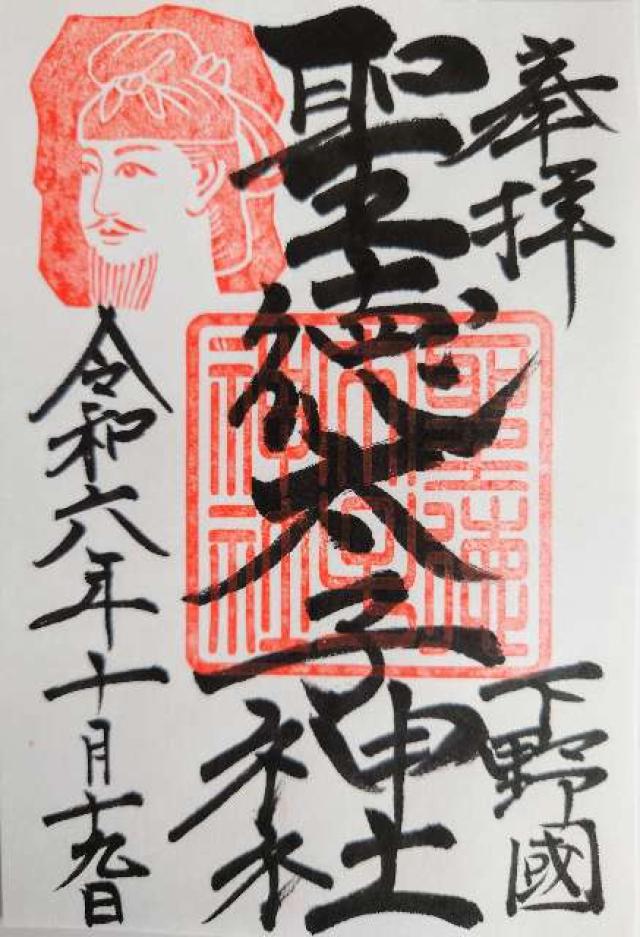 奉拝
下野國
聖徳太子神社
聖徳太子神社
令和六年十月十九日